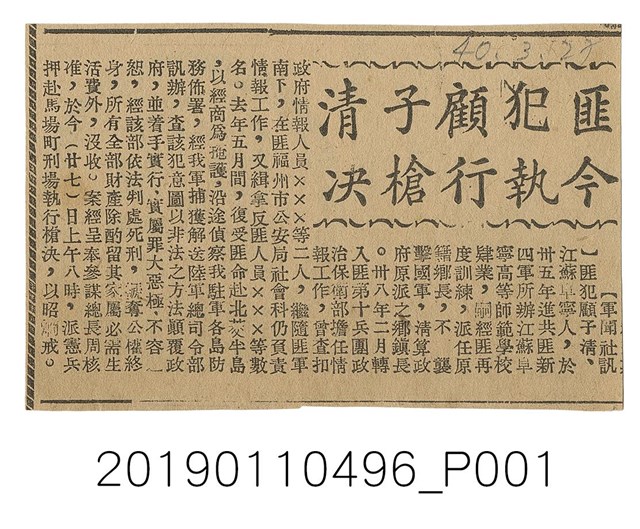 40.3.27
匪犯顧子清
今執行槍決
【軍聞社訊
】匪犯顧子清、
江蘇阜寧人,於
卅五年進共匪新
四軍所辦江蘇阜
寧高等師範學校
肄業,嗣經匪再
度訓練,派任原
籍鄉長,不 襲
擊國軍,清算政
府原派之鄉鎮長
。卅八年二月轉
入匪第十兵團政
治保衛部擔任情
報工作,曾查扣
政府情報人員×××等二人,繼隨匪軍
南下,在匪福州市公安局社會科仍負責
情報工作,又緝拿反匪人員×××等數
名。去年五月間,復受匪命赴北茭半島
,以經商為掩護,沿途偵察我駐軍各島防
務佈署,經我軍捕獲解送陸軍總司令部
訊辦,查該犯意圖以非法之方法顛覆政
府,並着手實行,實屬罪大惡極,不容
恕,經該部依法判處死刑,褫奪公權終
身,所有全部財產除酌留其家屬必需生
活費外,沒收。案經呈奉參謀總長周核
准,於今(廿七)日上午八時,派憲兵
押赴馬場町刑場執行槍決,以昭炯戒。
20190110496_P001